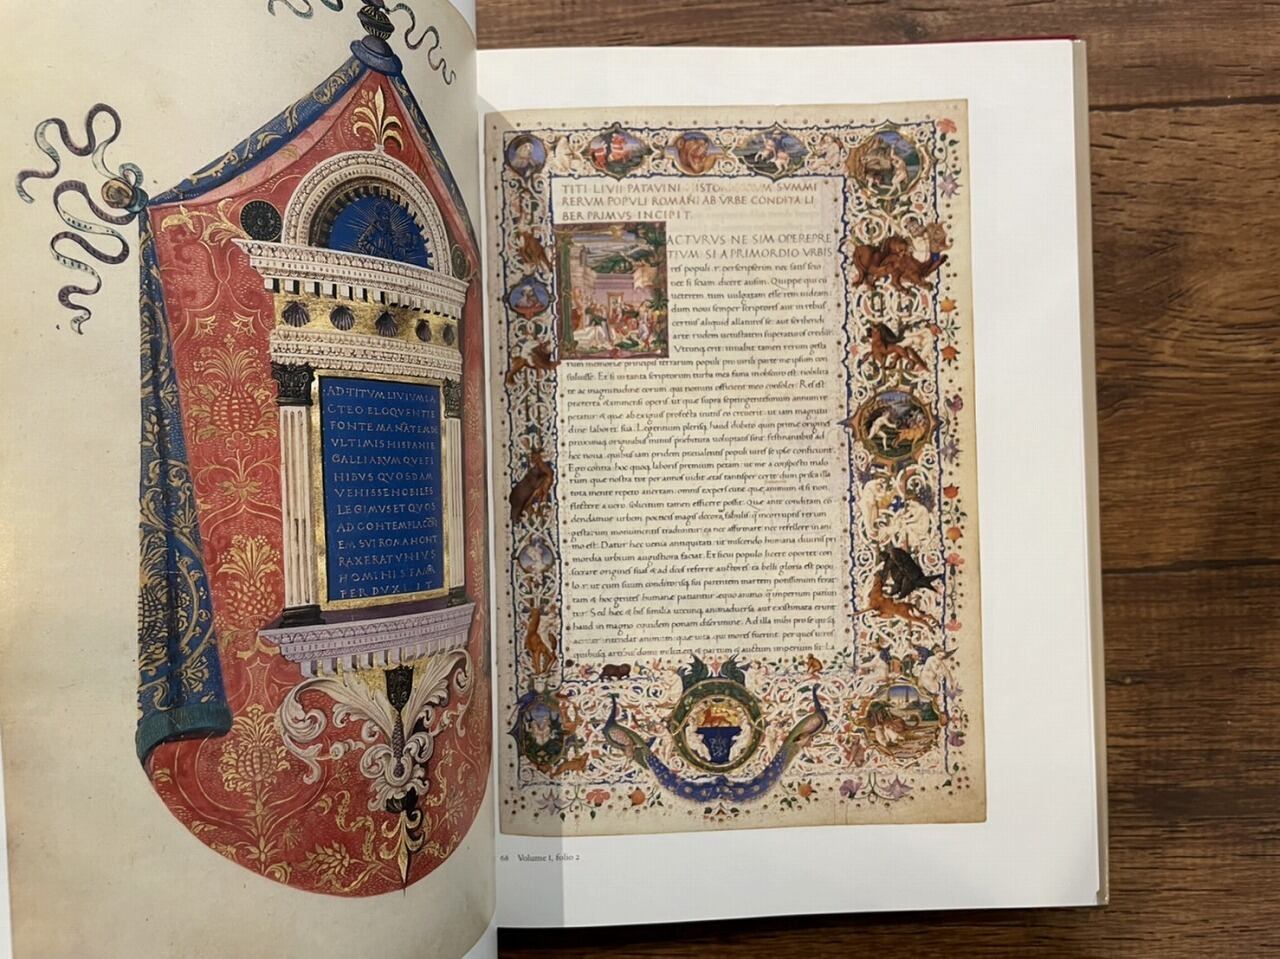 AD·TITVM·LIVIVM·LA
CTEO·ELOQVENTIE
FONTE·MANATEM·DE
VLTIMIS·HISPANIE
GALLIARVM·QVE·FI
NIBVS·QVOSDAM
VENISSE·NOBILES
LEGIMVS·ET·QVOS
AD·CONTEMPLACŌN
EM·SVI·ROMA·NON·T
RAXERAT·VNIVS
HOMINIS·FAMA
PERDVXIT
TITI·LIVII·PATAVINI SVMMI
RERVM POPVLI ROMANI AB VRBE CONDITA LI
BER PRIMVS INCIPIT.
ACTVRVS NE SIM OPEREPRE
TIVM·SI A PRIMORDIO VRBIS
res populi·r·perscripserim, nec satis scio
nec si sciam, dicere ausim. Quippe qui cū
ueterem, tum uulgatam esse rem uideam:
dum noui semper scriptores aut in rebus
certius aliquid allaturos se: aut scribendi
arte rudem uetustatem superaturos credūt
Vtcunq; erit: iuuabit tamen rerum gesta
rum memoriae principis terrarum populi pro uirili parte me ipsum con
suluisse. Et si in tanta scriptorum turba mea fama in obscuro est: nobilita
te ac magnitudine eorum, qui nomini officient meo consoler. Res est
praeterea & immensi operis, ut quae supra septingentesimum annum re
petatur: & quae ab exiguis profecta initiis eo creuerit: ut iam magnitu
dine laboret sua. Legentium plerisq; haud dubito quin prime origines
proximaq; originibus minus praebitura uoluptatis sint: festinantibus ad
hec noua: quibus iam pridem praeualentis populi uires se ipse conficiunt
Ego contra: hoc quoq; laboris premium petam: ut me a conspectu malo
rum quae nostra tot per annos uidit aetas tantisper certe dum prisca illa
tota mente repeto auertam: omnis expers curae quae animum & si non
flectere a uero, solicitum tamen efficere possit. Quae ante conditam cō
dendamue urbem poeticis magis decora fabulis: q̄ incorruptis rerum
gestarum monumentis traduntur: ea nec affirmare: nec refellere in ani
mo est. Datur hec uenia antiquitati: ut miscendo humana diuinis pri
mordia urbium augustiora faciat. Et si cui populo licere oportet con
secrare origines suas & ad deos referre auctores: ea belli gloria est popu
lo·r·ut cum suum conditorisq; sui parentem martem potissimum ferat
tam & hoc gentes humane patiantur aequo animo: q̄ imperium patiun
tur. Sed hec & his similia utcunq; animaduersa aut existimata erunt
haud in magno equidem ponam discrimine. Ad illa mihi pro se quisq;
acriter intendat animum: quae uita, qui mores fuerint: per quos uiros:
quibusq; artibus domi militiaeq; & partum & auctum imperium sit: La
68 Volume I, folio 2